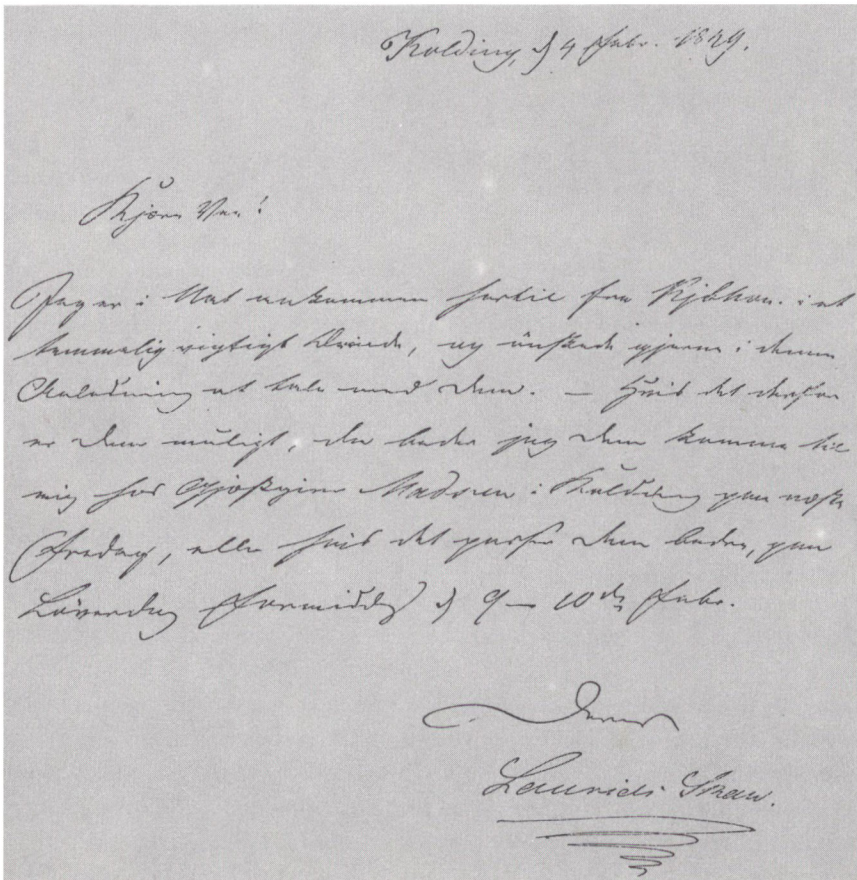 Kolding, d 4 Febr. 1849.
Kjære Ven!
Jeg er i Nat ankommen hertil fra Kjöbhvn. i et
temmelig vigtigt Ærinde, og önskede gjerne i denne
Anledning at tale med Dem. — Hvis det derfor
er Dem muligt, da beder jeg Dem komme til
mig hos Gjæstgiver Madsen i Kolding paa næste
Fredag, eller hvis det passer Dem bedre, paa
Löverdag Formiddag d 9 — 10de Febr.
Deres
Laurids Skau.